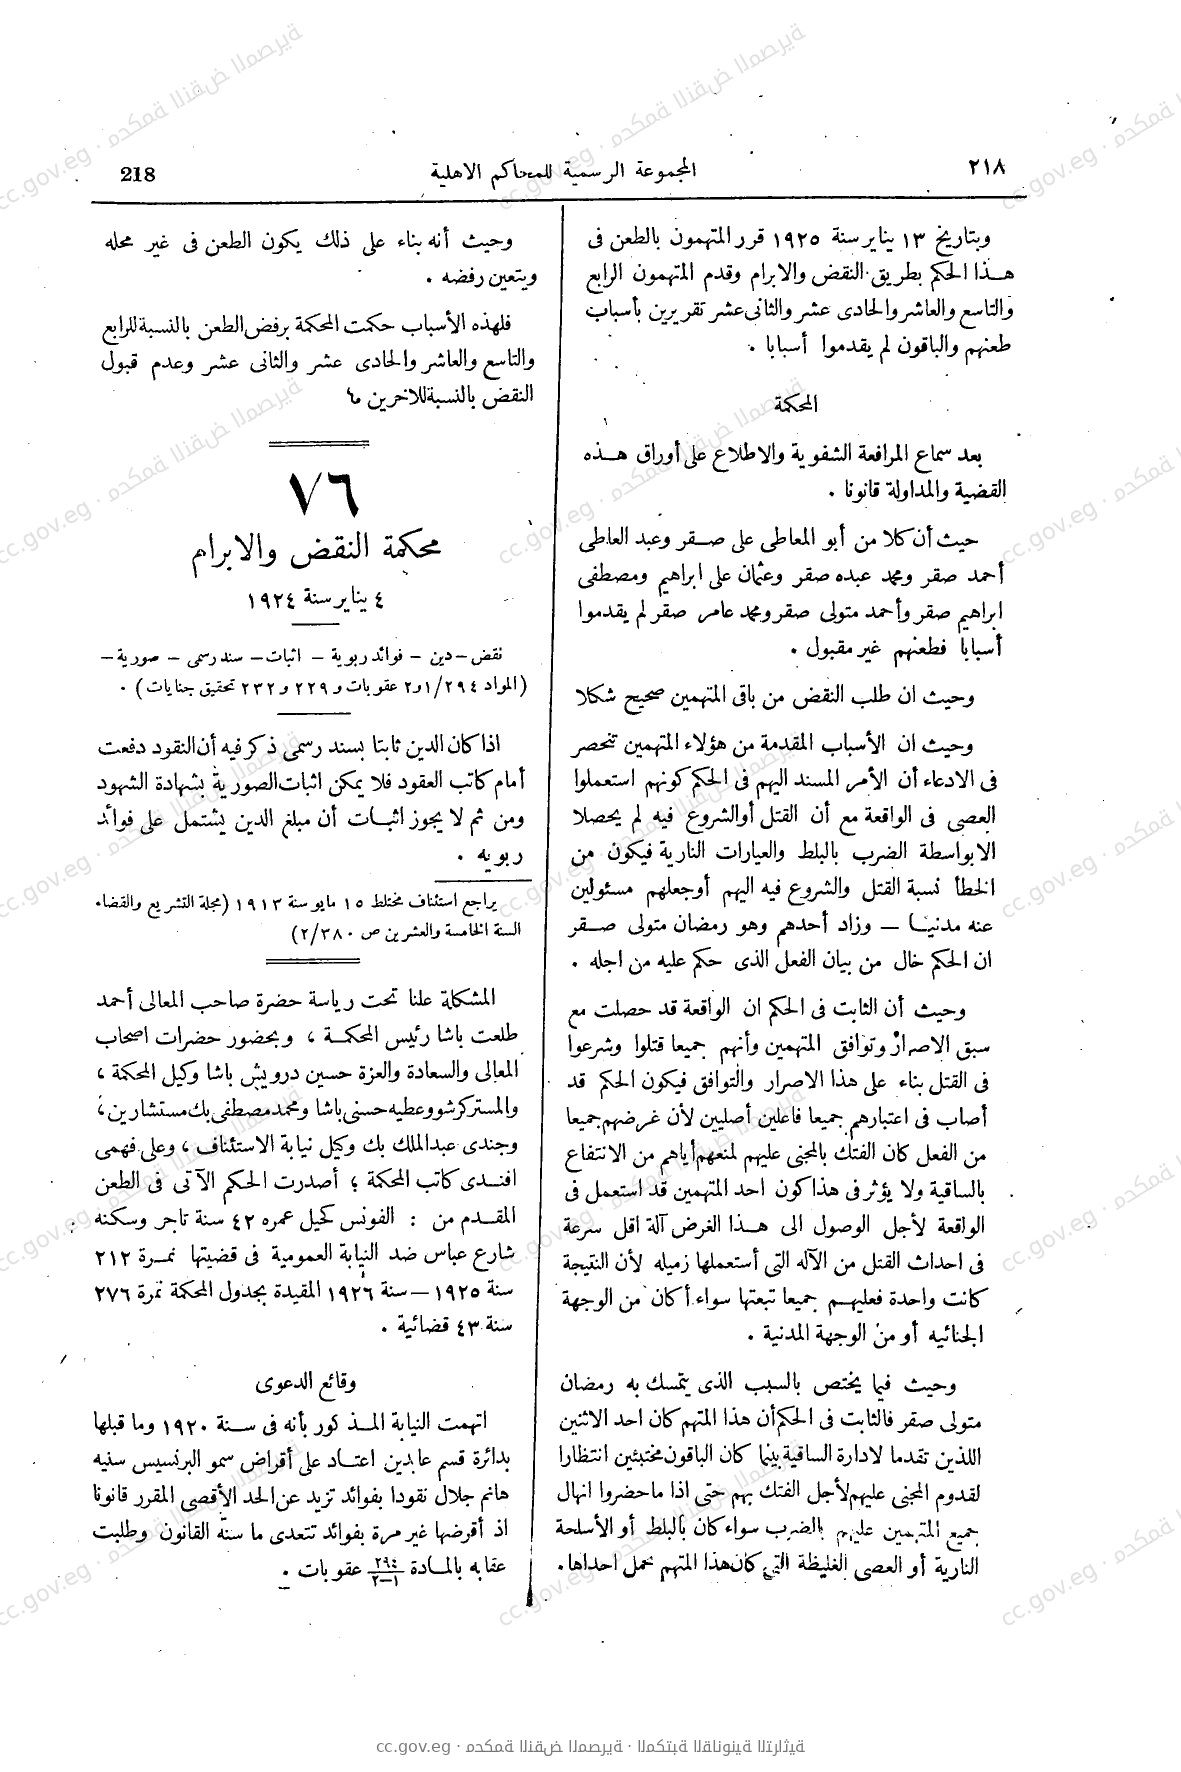 ٢١٨
المجموعة الرسمية للمحاكم الاهلية
218
وبتاريخ ١٣ يناير سنة ١٩٢٥ قرر المتهمون بالطعن فى
هـذا الحكم بطريق النقض والابرام وقدم المتهمون الرابع
والتاسع والعاشر والحادى عشر والثانى عشر تقريرين بأسباب
طعنهم والباقون لم يقدموا أسبابا .
المحكمة
بعد سماع المرافعة الشفوية والاطلاع على أوراق هـذه
القضية والمداولة قانونا .
حيث أن كلا من أبو المعاطى على صـقر وعبد العاطى
أحمد صقر ومحمد عبده صقر وعثمان على ابراهيم ومصطفى
ابراهيم صقر وأحمد متولى صقر ومحمد عامر صقر لم يقدموا
أسبابا فطعنهم غير مقبول .
وحيث ان طلب النقض من باقى المتهمين صحيح شكلا
وحيث ان الأسباب المقدمة من هؤلاء المتهمين تنحصر
فى الادعاء أن الأمر المسند اليهم فى الحكم كونهم استعملوا
العصى فى الواقعة مع أن القتل أوالشروع فيه لم يحصلا
الابواسطة الضرب بالبلط والعيارات النارية فيكون من
الخطأ نسبة القتل والشروع فيه اليهم أوجعلهم مسئولين
عنه مدنيـا — وزاد أحدهم وهو رمضان متولى صـقر
ان الحكم خال من بيان الفعل الذى حكم عليه من اجله .
وحيث أن الثابت فى الحكم ان الواقعة قد حصلت مع
سبق الاصرار وتوافق المتهمين وأنهم جميعا قتلوا وشرعوا
فى القتل بناء على هذا الاصرار والتوافق فيكون الحكم قد
أصاب فى اعتبارهم جميعا فاعلين أصليين لأن غرضهم جميعا
من الفعل كان الفتك بالمجنى عليهم لمنعهم أياهم من الانتفاع
بالساقية ولا يؤثر فى هذا كون احد المتهمين قد استعمل فى
الواقعة لأجل الوصول الى هـذا الغرض آلة اقل سرعة
فى احداث القتل من الآله التى أستعملها زميله لأن النتيجة
كانت واحدة فعليهـم جميعا تبعتها سواء أكان من الوجهة
الجنائيه أو من الوجهة المدنية .
وحيث فيما يختص بالسبب الذى يتمسك به رمضان
متولى صقر فالثابت فى الحكم أن هذا المتهم كان احد الاثنين
اللذين تقدما لادارة الساقية بينما كان الباقون مختبئين انتظارا
لقدوم المجنى عليهم لأجل الفتك بهم حتى اذا ما حضروا انهال
جميع المتهمين عليهم بالضرب سواء كان بالبلط أو الأسلحة
النارية أو العصى الغليظة التى كان هذا المتهم يحمل احداها.
وحيث أنه بناء على ذلك يكون الطعن فى غير محله
ويتعين رفضه .
فلهذه الأسباب حكمت المحكمة برفض الطعن بالنسبة للرابع
والتاسع والعاشر والحادى عشر والثانى عشر وعدم قبول
النقض بالنسبة للاخرين
٧٦
محكمة النقض والابرام
٤ يناير سنة ١٩٢٤
نقض – دين – فوائد ربوية – اثبات – سند رسمى – صورية –
(المواد ١/٢٩٤و٢ عقوبات و ٢٢٩ و ٢٣٢ تحقيق جنايات) .
اذا كان الدين ثابتا بسند رسمى ذكر فيه أن النقود دفعت
أمام كاتب العقود فلا يمكن اثبات الصورية بشهادة الشهود
ومن ثم لا يجوز اثبـات أن مبلغ الدين يشتمل على فوائد
ربويه .
يراجع استئناف مختلط ١٥ مايو سنة ١٩١٣ (مجلة التشريع والقضاء
السنة الخامسة والعشرين ص ٢/٣٨٠)
المشكلة علنا تحت رياسة حضرة صاحب المعالى أحمد
طلعت باشا رئيس المحكمـة ، وبحضور حضرات اصحاب
المعالى والسعادة والعزة حسين درويش باشا وكيل المحكمة ،
والمستر كرشو وعطيه حسنى باشا ومحمد مصطفى بك مستشارين،
وجندى عبدالملك بك وكيل نيابة الاستئناف ، وعلى فهمى
افنـدى كاتب المحكمة ؛ أصدرت الحكم الآتى فى الطعن
المقـدم من : الفونس كحيل عمره ٤٢ سنة تاجر وسكنه
شارع عباس ضد النيابة العمومية فى قضيتها نمـرة ٢١٢
سنة ١٩٢٥ — سنة ١٩٢٦ المقيدة بجدول المحكمة نمرة ٢٧٦
سنة ٤٣ قضائية .
وقائع الدعوى
اتهمت النيابة المـذكور بأنه فى سـنة ١٩٢٠ وما قبلها
بدائرة قسم عابدين اعتـاد على أقراض سمو البرنسيس سنيه
هانم جلال نقودا بفوائد تزيد عن الحد الأقصى المقرر قانونا
اذ أقرضها غير مرة بفوائد تتعدى ما سنة القانون وطلبت
عقابه بالمـادة ٢٩٤/١–٢ عقوبات .
cc.gov.eg · محكمة النقض المصرية · المكتبة القانونية التراثية